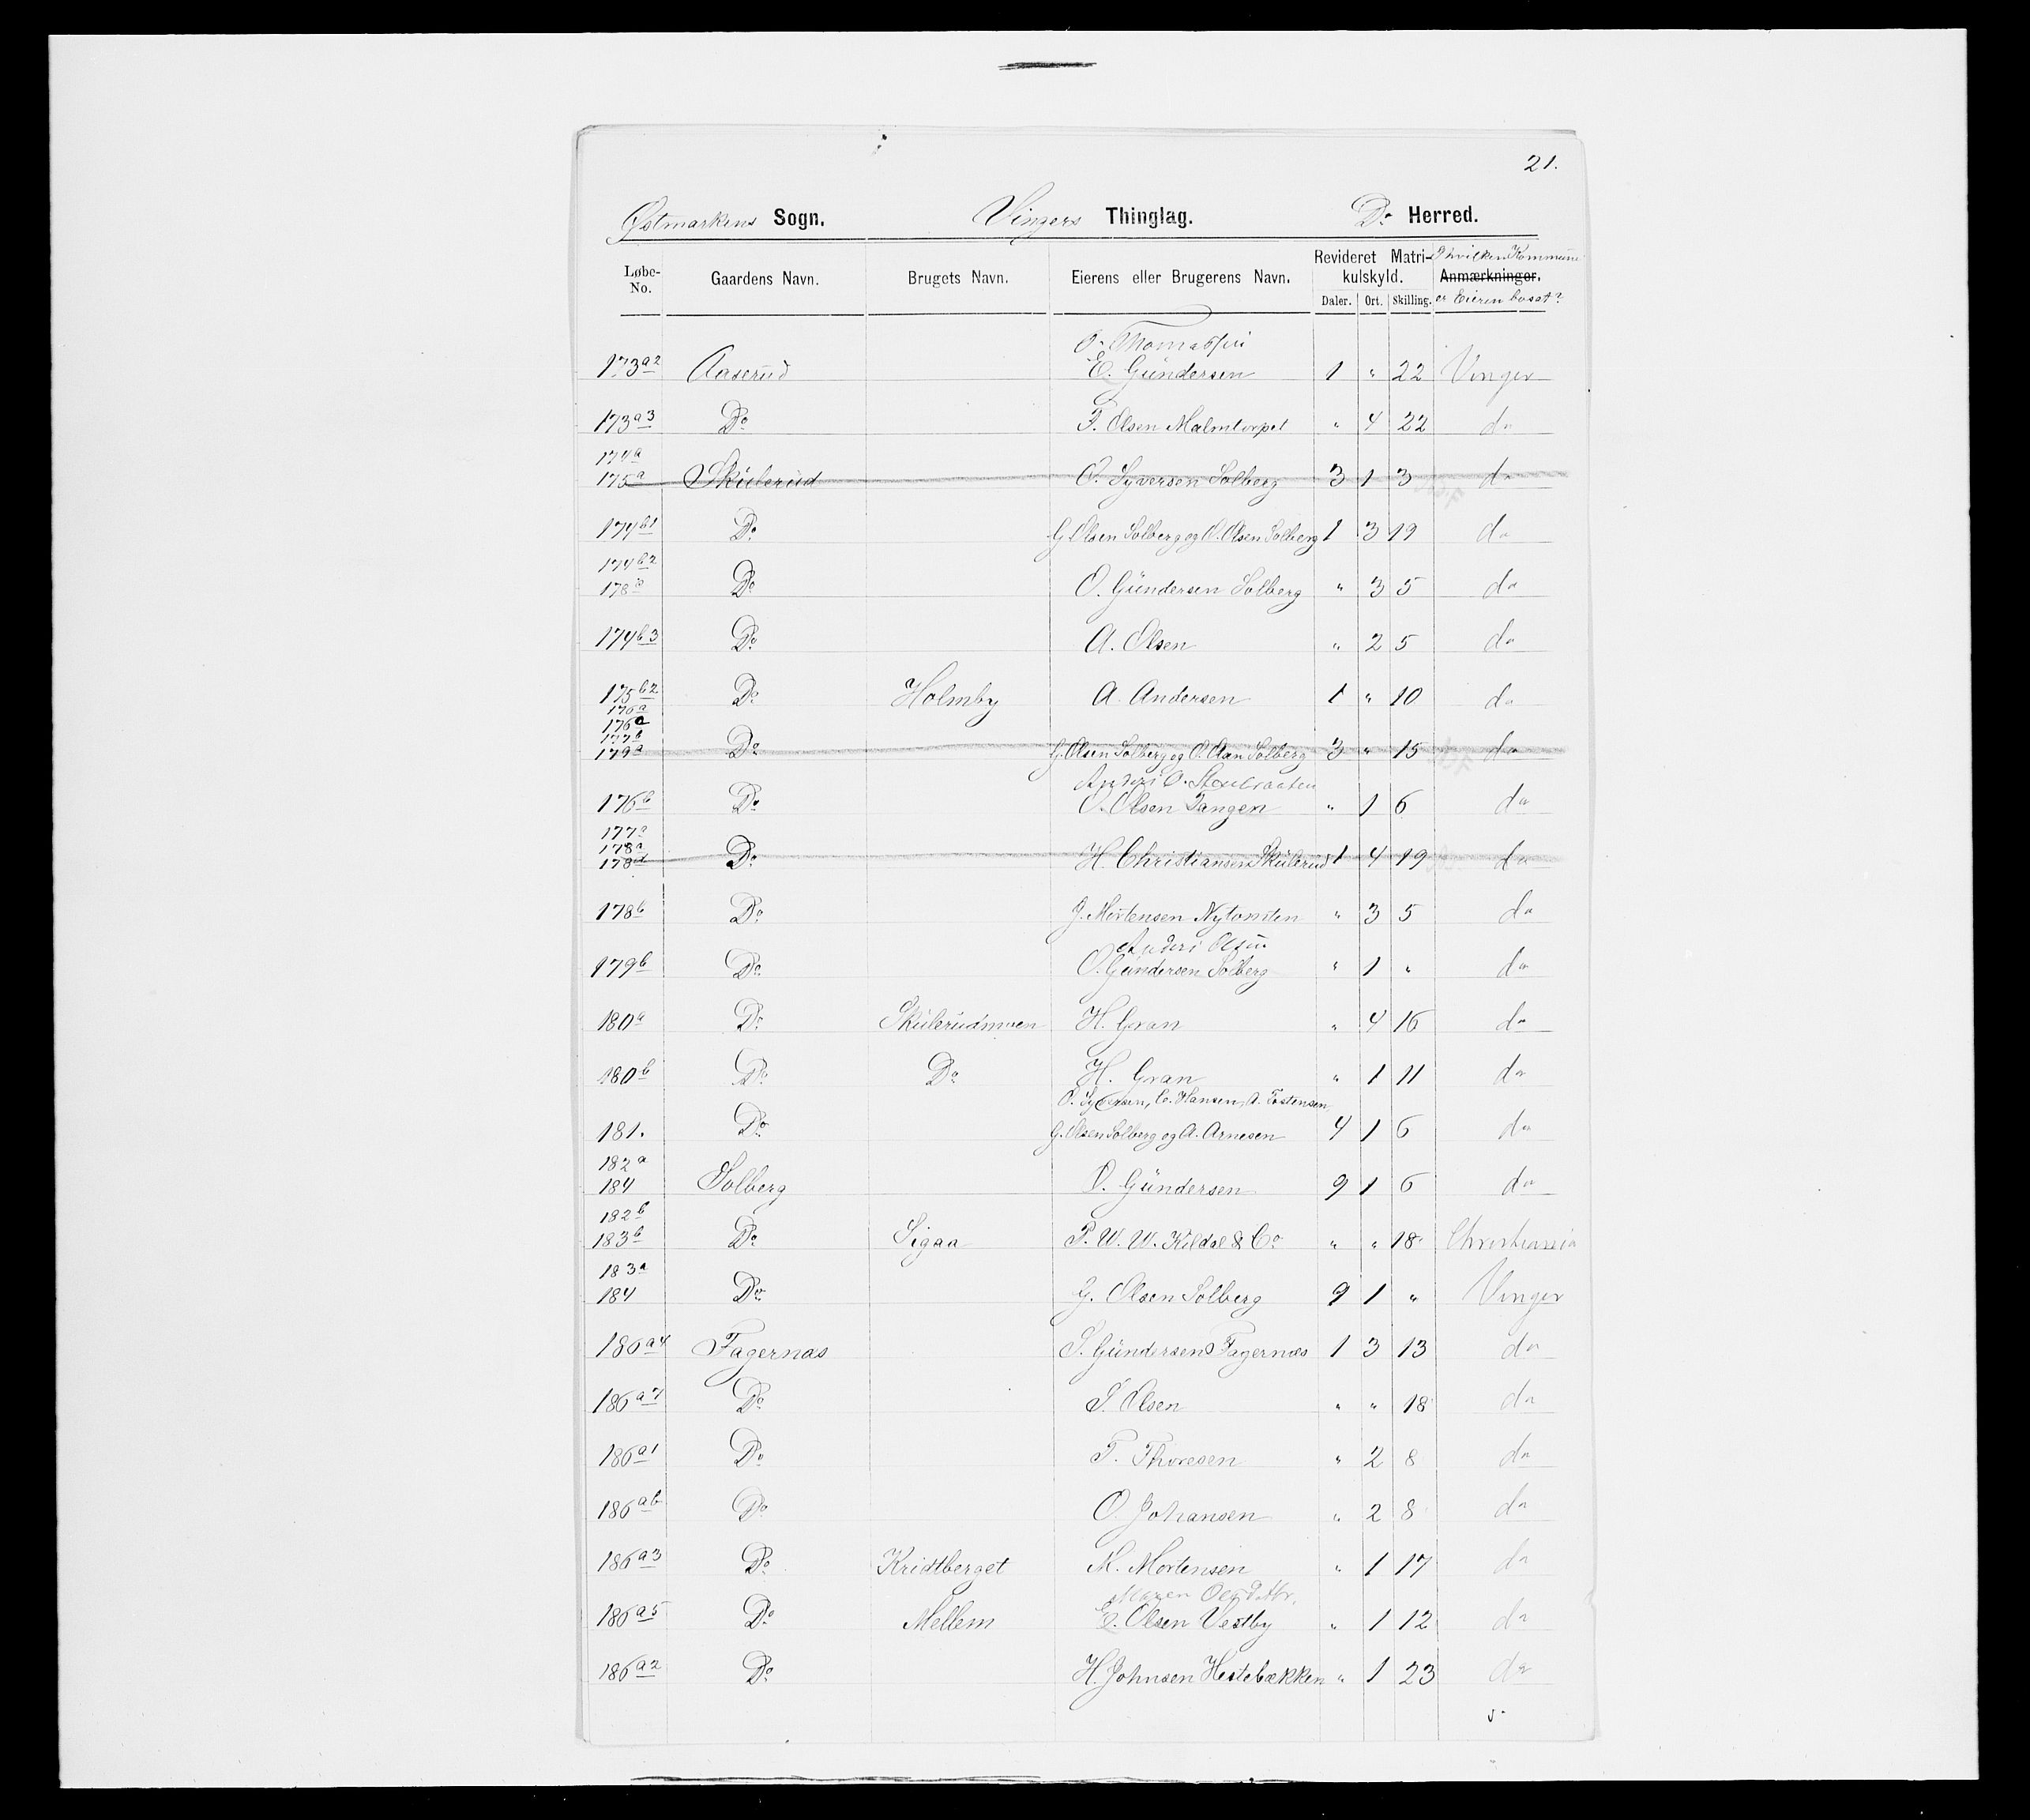 21.
Østmarkens Sogn. Vingers Thinglag. Do Herred.
Løbe-No. Gaardens Navn. Brugets Navn. Eierens eller Brugerens Navn. Revideret Matrikulskyld. Daler. Ort. Skilling. Anmærkninger. I hvilken Kommune er Eieren bosat?
O. Thomassen
173 a2 Aaserud E. Gundersen 1 " 22 Vinger
173 a3 Do T. Olsen Malmtorpet " 4 22 do
174 a
175 a Skulerud O. Syversen Solberg 3 1 3 do
174 b1 Do G. Olsen Solberg og O. Olsen Solberg 1 3 19 do
174 b2
178 Do O. Gundersen Solberg " 3 5 do
174 b3 Do A. Olsen " 2 5 do
175 b2
176 a Do Holmby A. Andersen 1 " 10 do
176 a
177 b
179 a Do G. Olsen Solberg og O. Olsen Solberg 3 " 15 do
Anders O.
176 b Do O. Olsen Tangen " 1 6 do
177 a
178 a
178 d Do H. Christiansen Skulerud 1 4 19 do
178 b Do J. Mortensen Nytomten " 3 5 do
Anders Olsen
179 b Do O. Gundersen Solberg " 1 " do
180 a Do Skulerudmoen H. Gran " 4 16 do
180 b Do Do H. Gran " 1 11 do
O. Syversen, C. Hansen, A. Tostensen
181. Do G. Olsen Solberg og A. Arnesen 4 1 6 do
182 a
184 Solberg O. Gundersen 9 1 6 do
182 b
183 b Do Sigaa P. W. W. Kildal & Co " " 18 Christiania
183 a
184 Do G. Olsen Solberg 9 1 " Vinger
186 a4 Fagernas P. Gundersen Fagernæs 1 3 13 do
186 a7 Do P. Olsen " " 18 do
186 a1 Do T. Thoresen " 2 8 do
186 a6 Do O. Johansen " 2 8 do
186 a3 Do Kridtberget M. Mortensen " 1 17 do
Maren Olsdatter,
186 a5 Do Mellem E. Olsen Vestby " 1 12 do
186 a2 Do H. Johnsen Hestebækken " 1 23 do